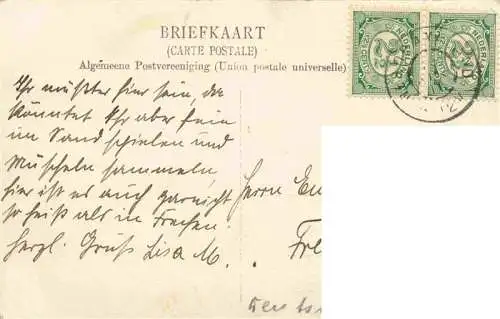 BRIEFKAART
(CARTE POSTALE)
Algemeene Postvereeniging (Union postale universelle)
Ihr müßtet hier sein, da
könntet Ihr aber fein
im Sand spielen und
Muscheln sammeln,
hier ist es auch garnicht
so heiß als in Frechen.
Herzl. Gruß Lisa M.
Herrn Eu
Fre
NEDERLAND
2½
NEDERLAND
2½